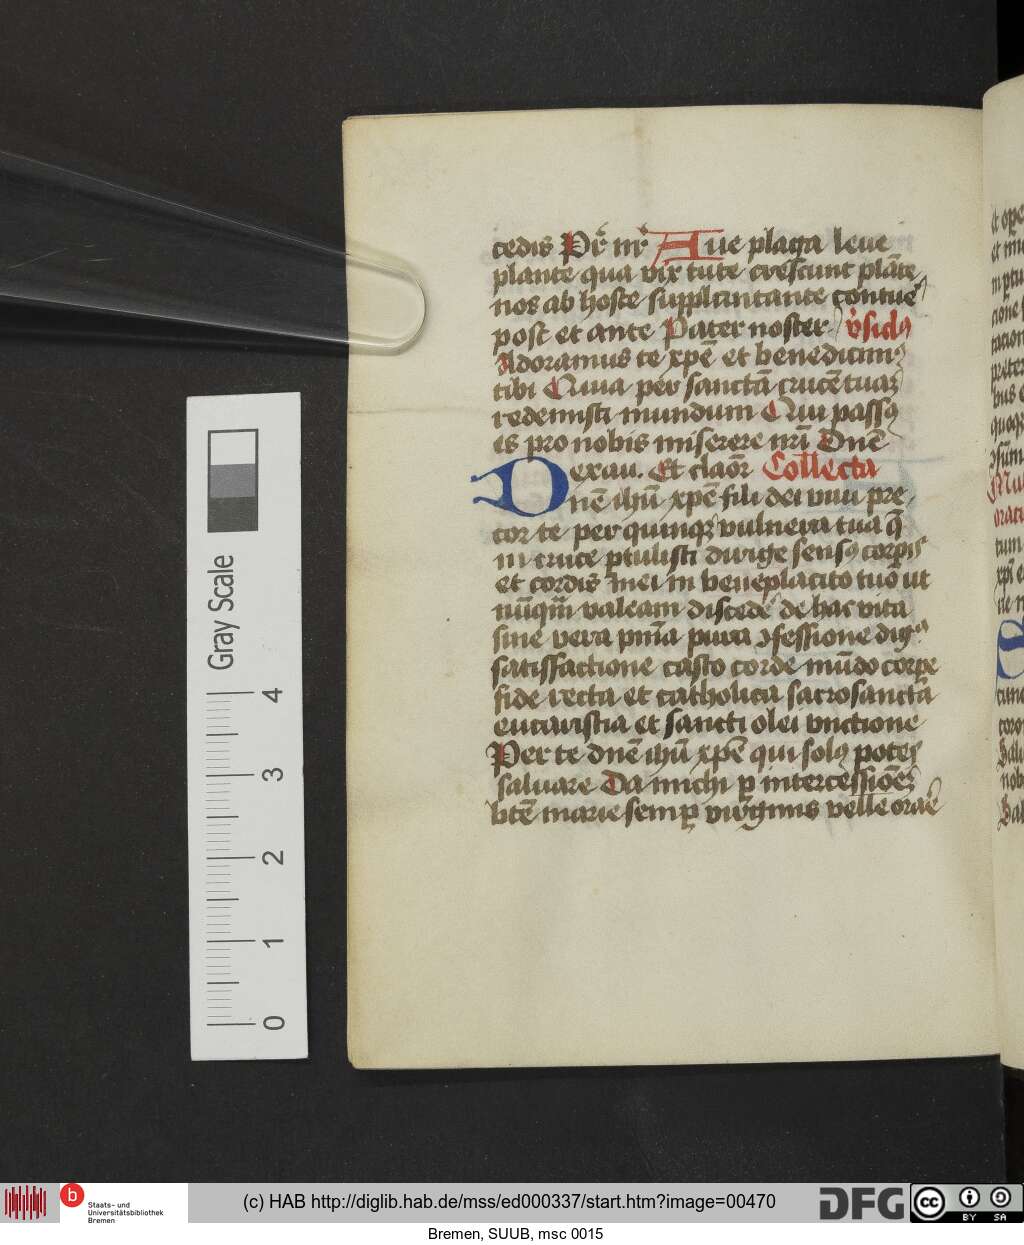 cedis Pr̄ nr̄ Aue plaga leue
plante qua virtute crescunt plāte
nos ab hoste supplantante contue
post et ante Pater noster v̓sic̄lꝯ
Adoramus te xpē et benedicimꝯ
tibi Quia per sanctā crucē tuaꝫ
redemisti mundum Qui passꝯ
es pro nobis miserere nr̄i Dn̄e
exau. Et claōr Collecta
Dn̄e ihū xpē fili dei viui pre
cor te per quinqꝫ vulnera tua q̄
in cruce ꝑtulisti dirige sensꝯ corꝑis
et cordis mei in beneplacito tuo ut
nūqm̄ valeam discedē de hac vita
sine vera pnīa pura ꝯfessione dig
satisfactione casto corde mūdo corꝑe
fide recta et catholica sacrosancta
eucaristia et sancti olei vnctione
Per te dn̄e ihū xpē qui solꝯ potes
saluare Da michi ꝑ intercessiōeꝫ
btē marie semꝑ virginis velle orāe
Gray Scale
4
3
2
1
0
b
Staats- und
Universitätsbibliothek
Bremen
(c) HAB http://diglib.hab.de/mss/ed000337/start.htm?image=00470
DFG
cc
BY SA
Bremen, SUUB, msc 0015